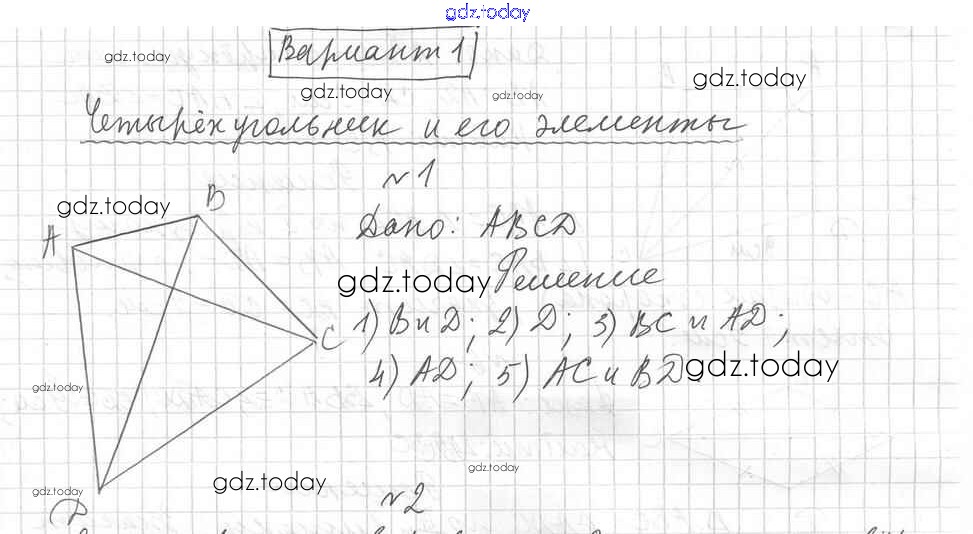 gdz.today
Вариант 1
gdz.today
gdz.today
gdz.today
gdz.today
Четырёхугольник и его элементы
№1
gdz.today
B
A
Дано: ABCD
gdz.today Решение
C 1) B и D; 2) D; 3) BC и AD;
4) AD; 5) AC и BD. gdz.today
gdz.today
gdz.today
gdz.today
gdz.today
D
№2